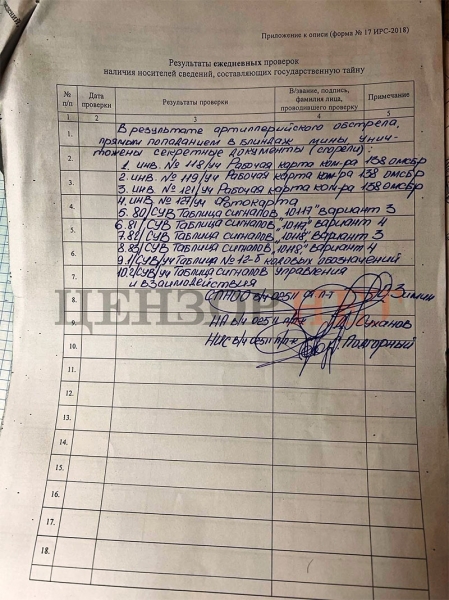 Приложение к описи (форма № 17 ИРС-2018)
Результаты ежедневных проверок
наличия носителей сведений, составляющих государственную тайну
№ п/п
Дата проверки
Результаты проверки
В/звание, подпись, фамилия лица, проводившего проверку
Примечание
1 2 3 4 5
1.
2.
3.
4.
5.
6.
7.
8.
9.
10.
11.
12.
13.
14.
15.
16.
17.
18.
В результате артиллерийского обстрела,
прямым попаданием в блиндаж мины унич-
тожены секретные документы (сгорели):
1. инв. № 118/уч Рабочая карта ком-ра 138 омсбр
2. инв. № 119/уч Рабочая карта ком-ра 138 омсбр
3. инв. № 121/уч Рабочая карта ком-ра 138 омсбр
4. инв. № 127/уч Автокарта
5. 80/СУВ Таблица сигналов „1017" вариант 3
6. 81/СУВ Таблица сигналов „1017" вариант 4
7. 82/СУВ Таблица сигналов „1018" вариант 3
8. 83/СУВ Таблица сигналов „1018" вариант 4
9. 1/СУВ/уч Таблица № 12-б кодовых обозначений
10. 2/СУВ/уч Таблица сигналов управления
и взаимодействия
в/ч 02511 п/п-к Зимин
НА в/ч 02511 п/п-к Суханов
НИС в/ч 02511 п/п-к Полгорный
ЦЕНЗОР.НЕТ